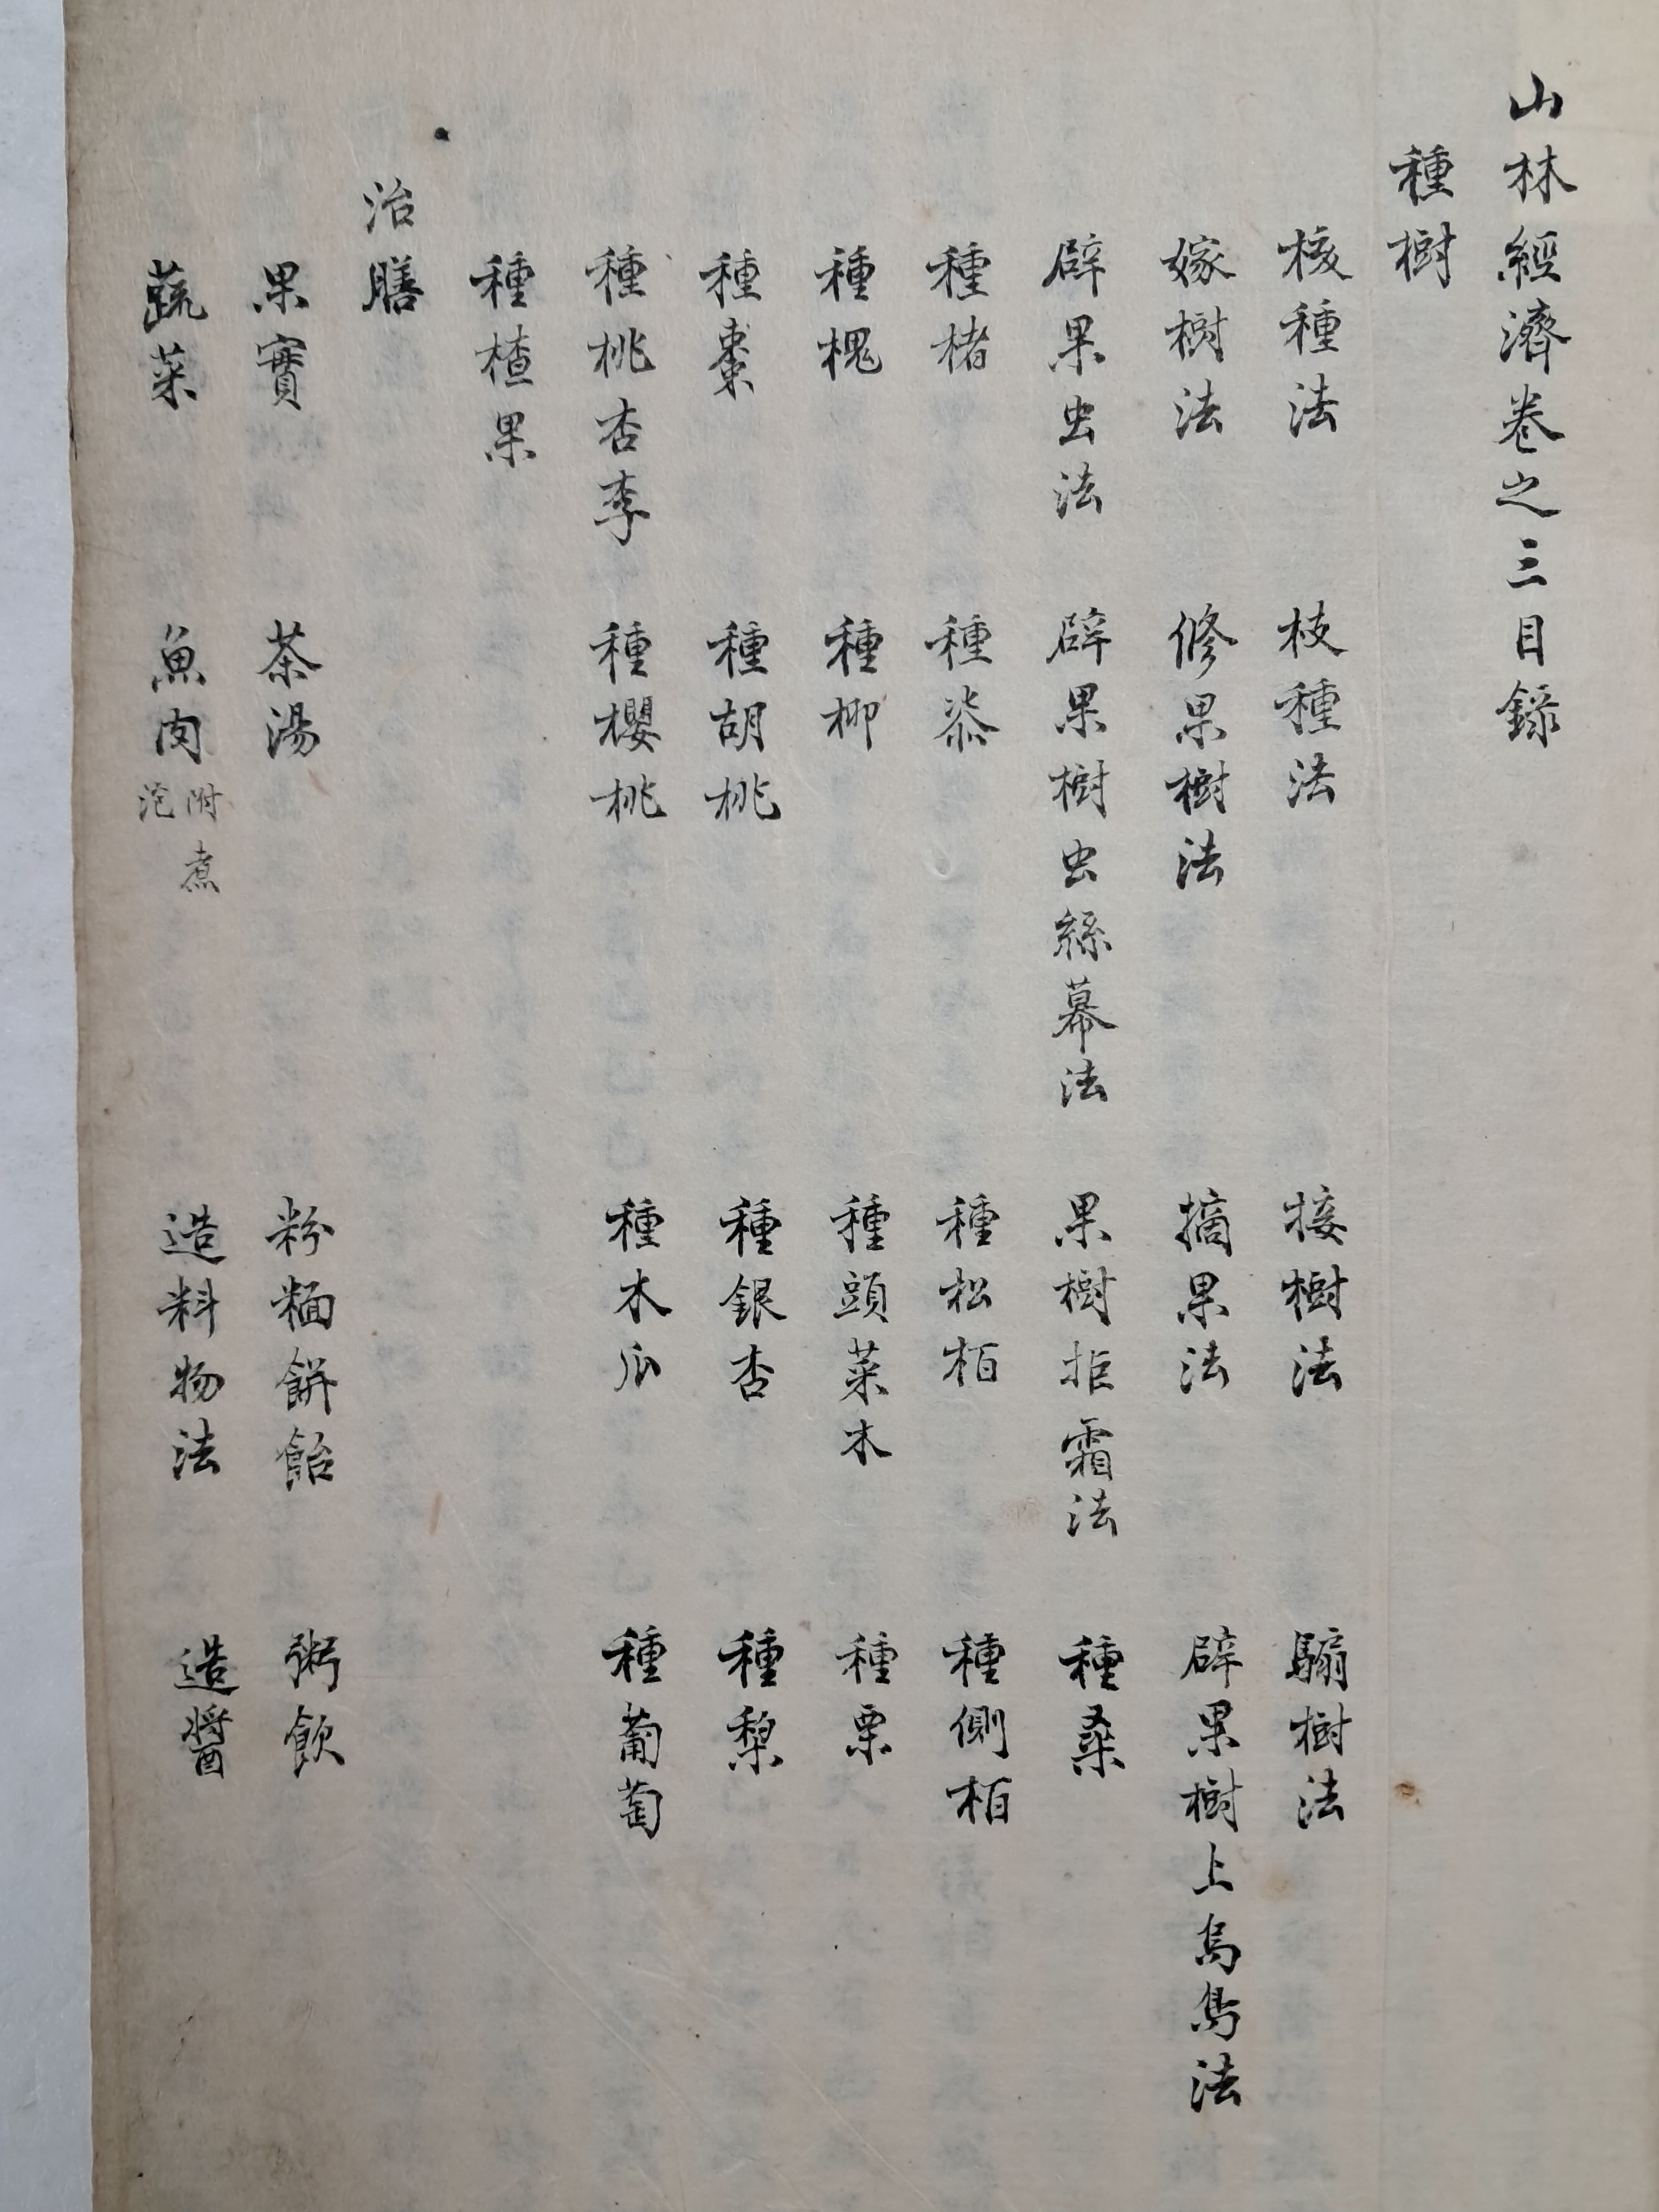 山林經濟卷之三目錄
種樹
核種法 枝種法 接樹法 騸樹法
嫁樹法 修果樹法 摘果法 辟果樹上烏鳥法
辟果虫法 辟果樹虫絲幕法 果樹拒霜法 種桑
種楮 種桼 種松栢 種側栢
種槐 種柳 種頭菜木 種栗
種棗 種胡桃 種銀杏 種梨
種桃杏李 種櫻桃 種木瓜 種葡萄
種樝果
治膳
果實 茶湯 粉麵餅飴 粥飮
蔬菜 魚肉 附煮泡 造料物法 造醬